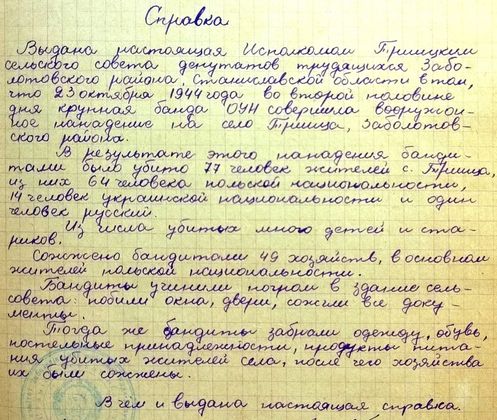 Справка
Выдана настоящая Исполкомом Трицкий
сельского совета депутатов трудящихся Забо-
лотовского района, Станиславской области в том,
что 23 октября 1944 года во второй половине
дня крупная банда ОУН совершила вооружён-
ное нападение на село Трийца, Заболотов-
ского района.
В результате этого нападения банди-
тами было убито 77 человек жителей с. Трийца,
из них 64 человека польской национальности,
14 человек украинской национальности и один
человек русский.
Из числа убитых много детей и ста-
риков.
Сожжено бандитами 49 хозяйств, в основном
жителей польской национальности.
Бандиты учинили погром в здание сель-
совета: побили окна, двери, сожгли все доку-
менты.
Тогда же бандиты забрали одежду, обувь,
постельные принадлежности, продукты пита-
ния убитых жителей села, после чего хозяйства
их были сожжены.
В чем и выдана настоящая справка.